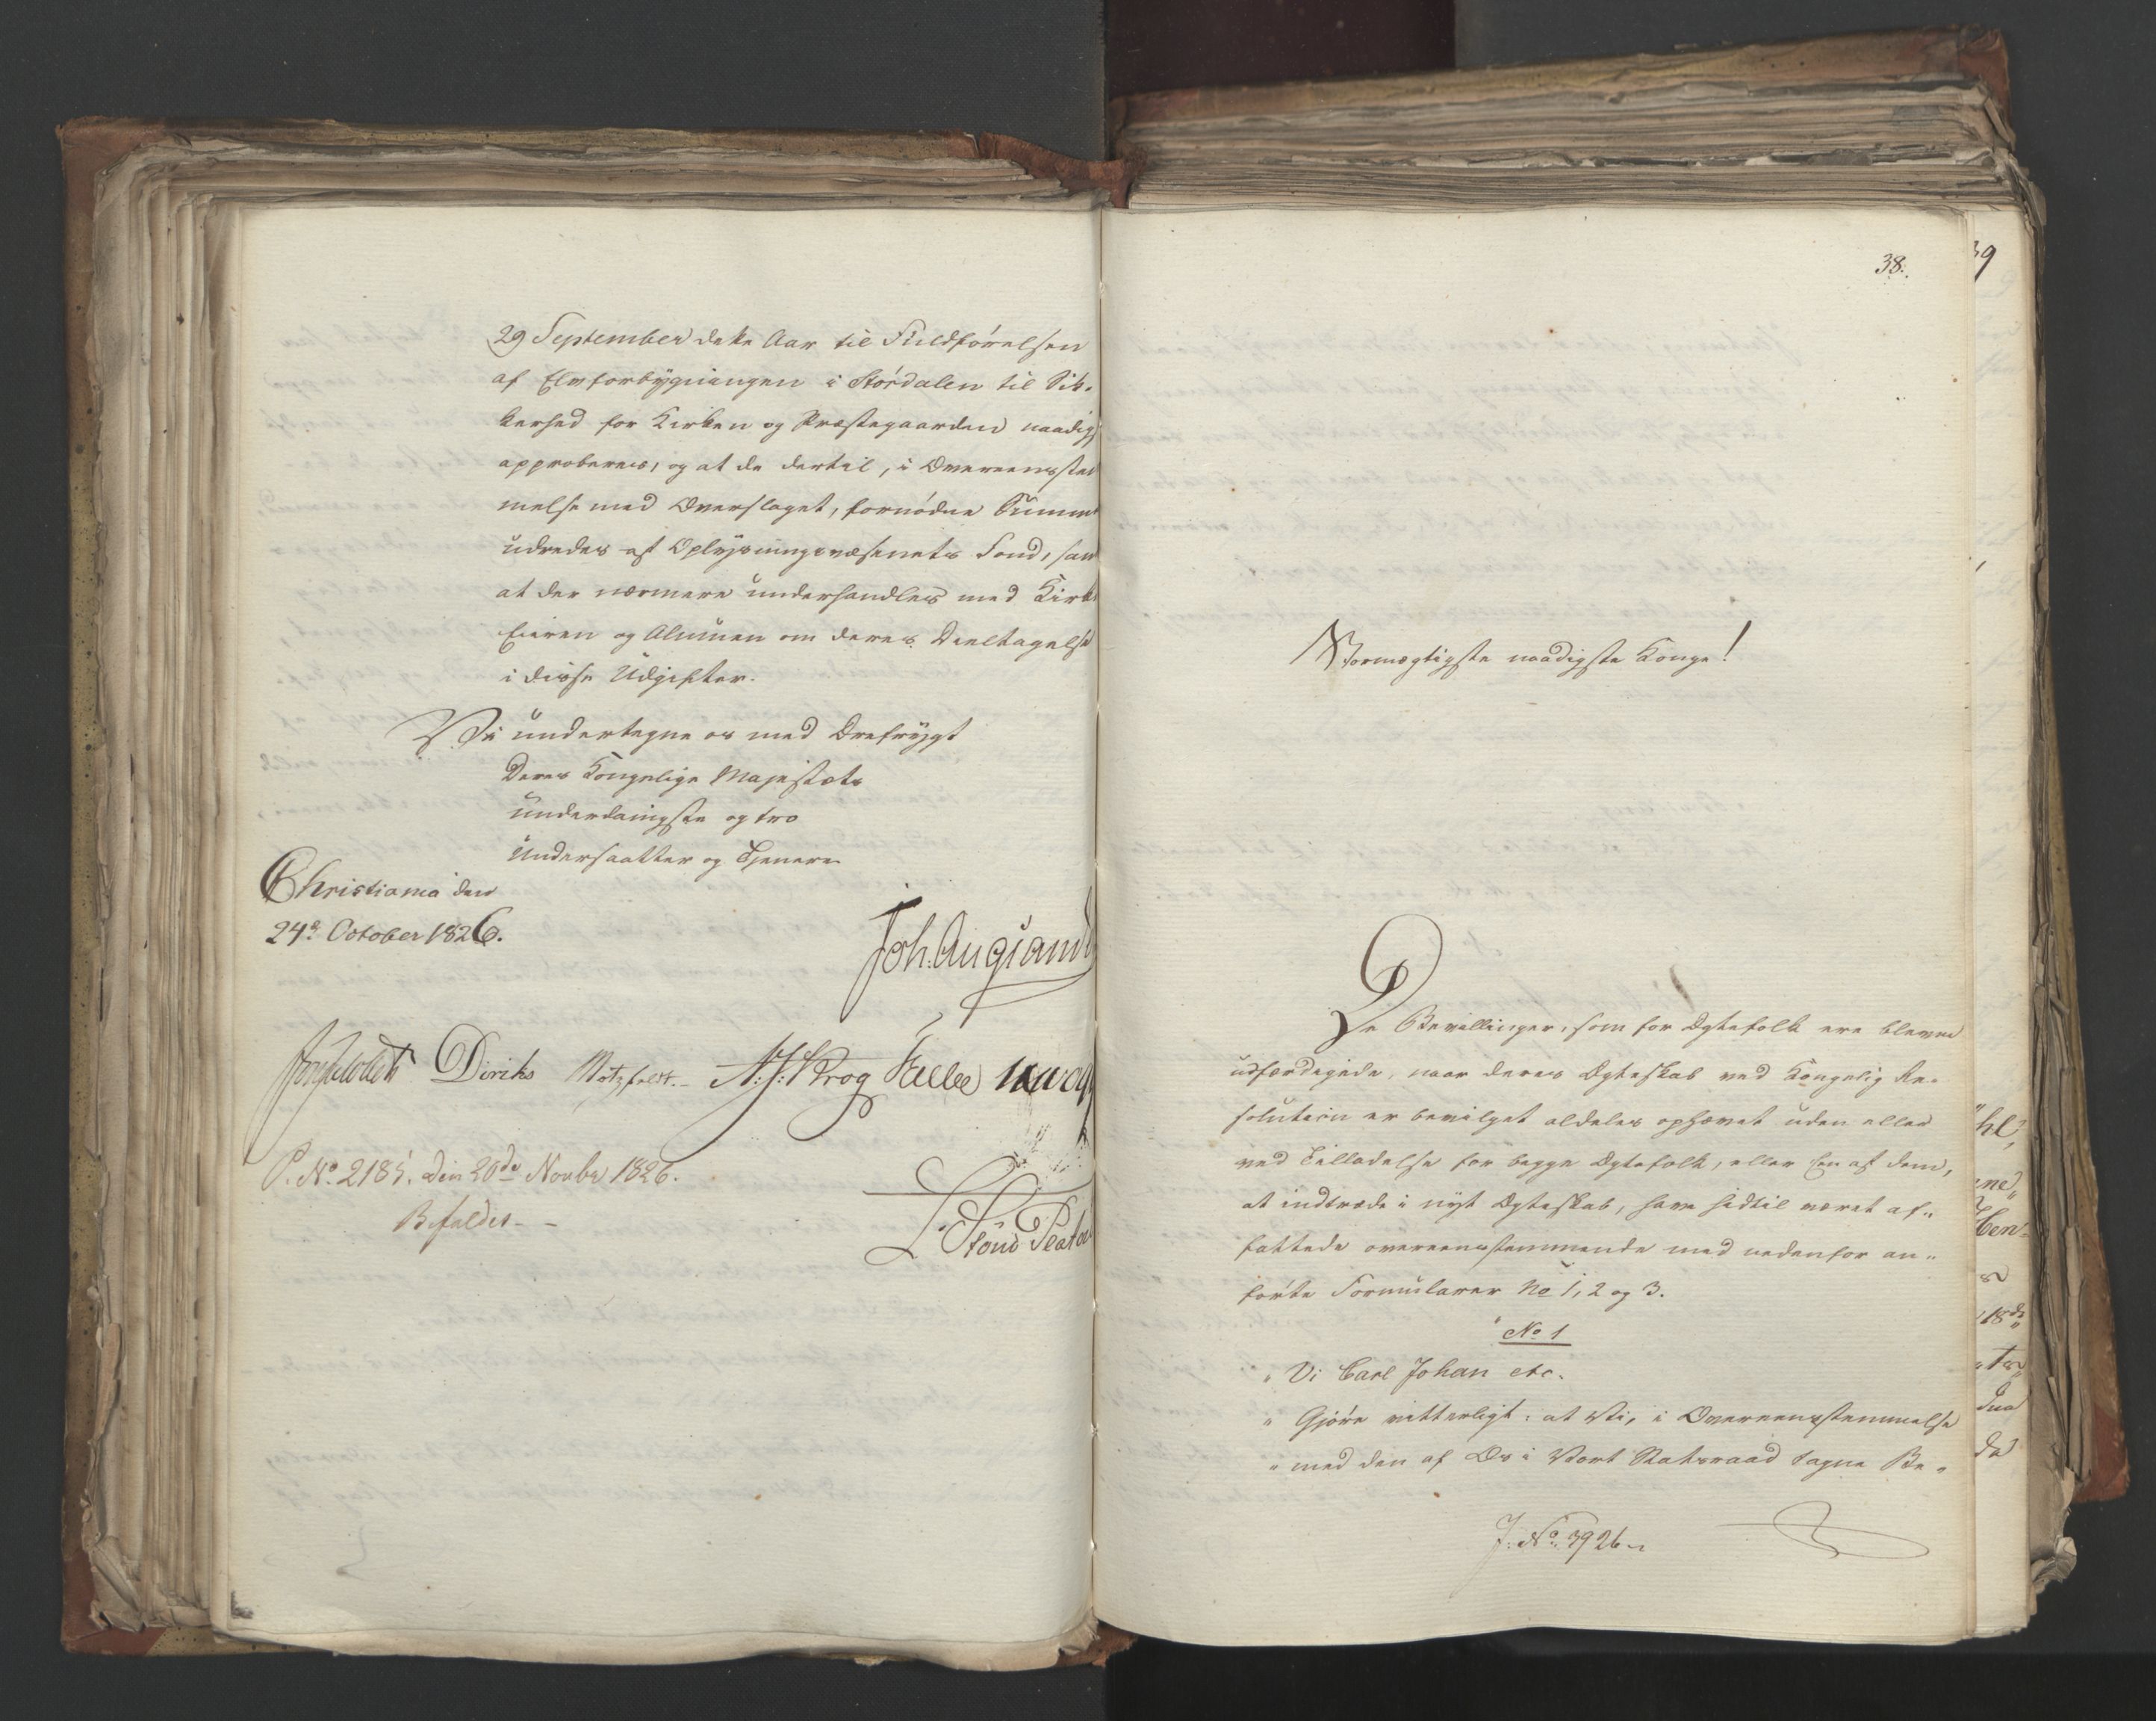 29 September dette Aar til Fuldførelsen
af Elveforbygningen i Størdalen til Sik-
kerhed for Kirken og Præstegaarden naadigst
approberes, og at de dertil, i Overeensstem
melse med Overslaget, fornødne Summer
udredes af Oplysningsvæsenets Fond, samt
at der nærmere underhandles med Kirke
Eieren og Almuen om deres Deeltagelse
i disse Udgifter.
Vi undertegne os med Ærefrygt
Deres Kongelige Majestæts
underdanigste og tro
Undersaatter og Tjenere
Christiania den
24de October 1826.
Joh. Aug Sand
Diriks Motzfeldt. N: J: Krog
P. No 2185. den 20de Novbr 1826.
Befales
38.
Stormægtigste naadigste Konge!
De Bevillinger, som for Ægtefolk ere blevne
udfærdigede, naar deres Ægteskab ved Kongelig Re-
solution er bevilget aldeles ophævet uden eller
ved Tilladelse for begge Ægtefolk, eller Een af dem,
at indtræde i nyt Ægteskab, have hidtil været af-
fattede overeensstemmende med nedenfor an-
førte Formularer No 1, 2 og 3.
No 1
" Vi Carl Johan etc.
" Gjøre vitterligt: at Vi, i Overeensstemmelse
" med den af Os i Vort Statsraad tagne Be-
J: No 3926
39